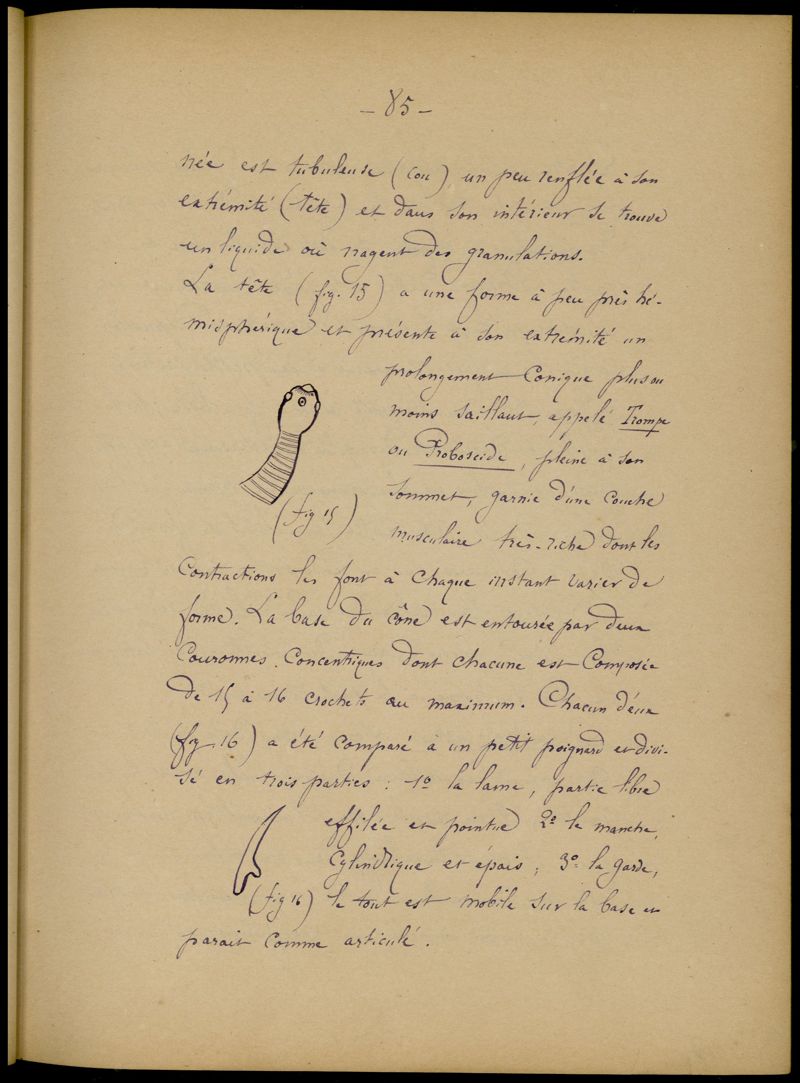 – 85 –
née est tubuleuse (cou) un peu renflée à son
extrémité (tête) et dans son intérieur se trouve
un liquide où nagent des granulations.
La tête (fig. 15) a une forme à peu près hé-
misphérique et présente à son extrémité un
prolongement conique plus ou
moins saillant, appelé Trompe
ou Proboscide, pleine à son
sommet, garnie d'une couche
musculaire très-riche dont les
(fig 15)
contractions les font à chaque instant varier de
forme. La base du cône est entourée par deux
couronnes concentriques dont chacune est composée
de 15 à 16 crochets au maximum. Chacun d'eux
(fig. 16) a été comparé à un petit poignard et divi-
sé en trois parties : 1º la lame, partie libre
effilée et pointue 2º le manche,
cylindrique et épais ; 3º la garde,
(fig 16) le tout est mobile sur la base et
parait comme articulé.